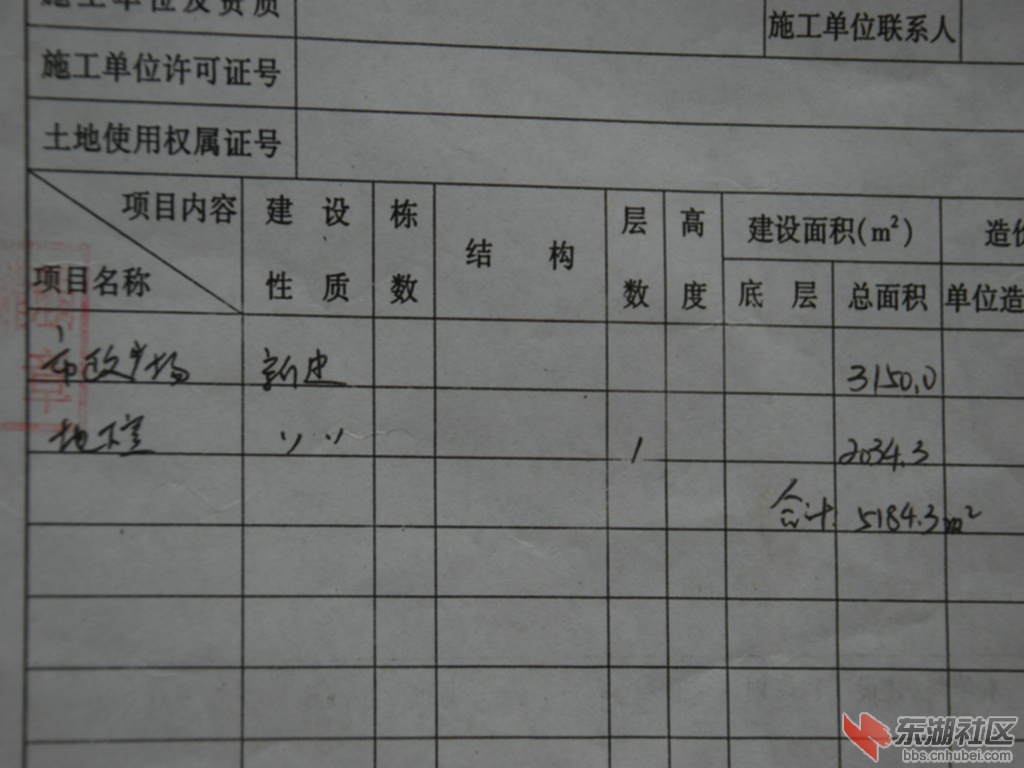 施工单位及资质
施工单位联系人
施工单位许可证号
土地使用权属证号
项目内容
项目名称
建设性质
栋数
结构
层数
高度
建设面积(m²)
底层
总面积
造价
单位造
市政广场 新建 3150.0
地下室 〃 〃 1 2034.3
合计 5184.3m²
章
东湖社区
bbs.cnhubei.com